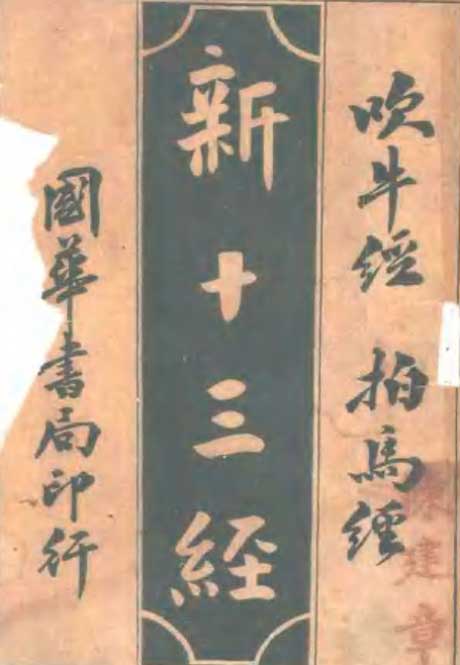 吹牛經 拍馬經
新十三經
國華書局印行
陳建章